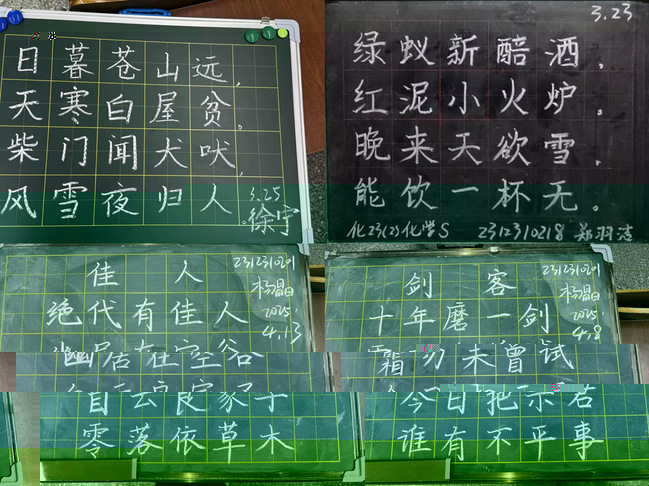 日暮苍山远,
天寒白屋贫。
柴门闻犬吠,
风雪夜归人
3.25
徐宁
3.23
绿蚁新醅酒,
红泥小火炉。
晚来天欲雪,
能饮一杯无。
化23(2)化学S 2312310218 郑羽洁
佳人
2312310201
杨昌日
2025.
4.13
绝代有佳人
幽居在空谷
自云良家子
零落依草木
剑客
2312310201
杨昌日
2025
4.8
十年磨一剑
霜刃未曾试
今日把示君
谁有不平事